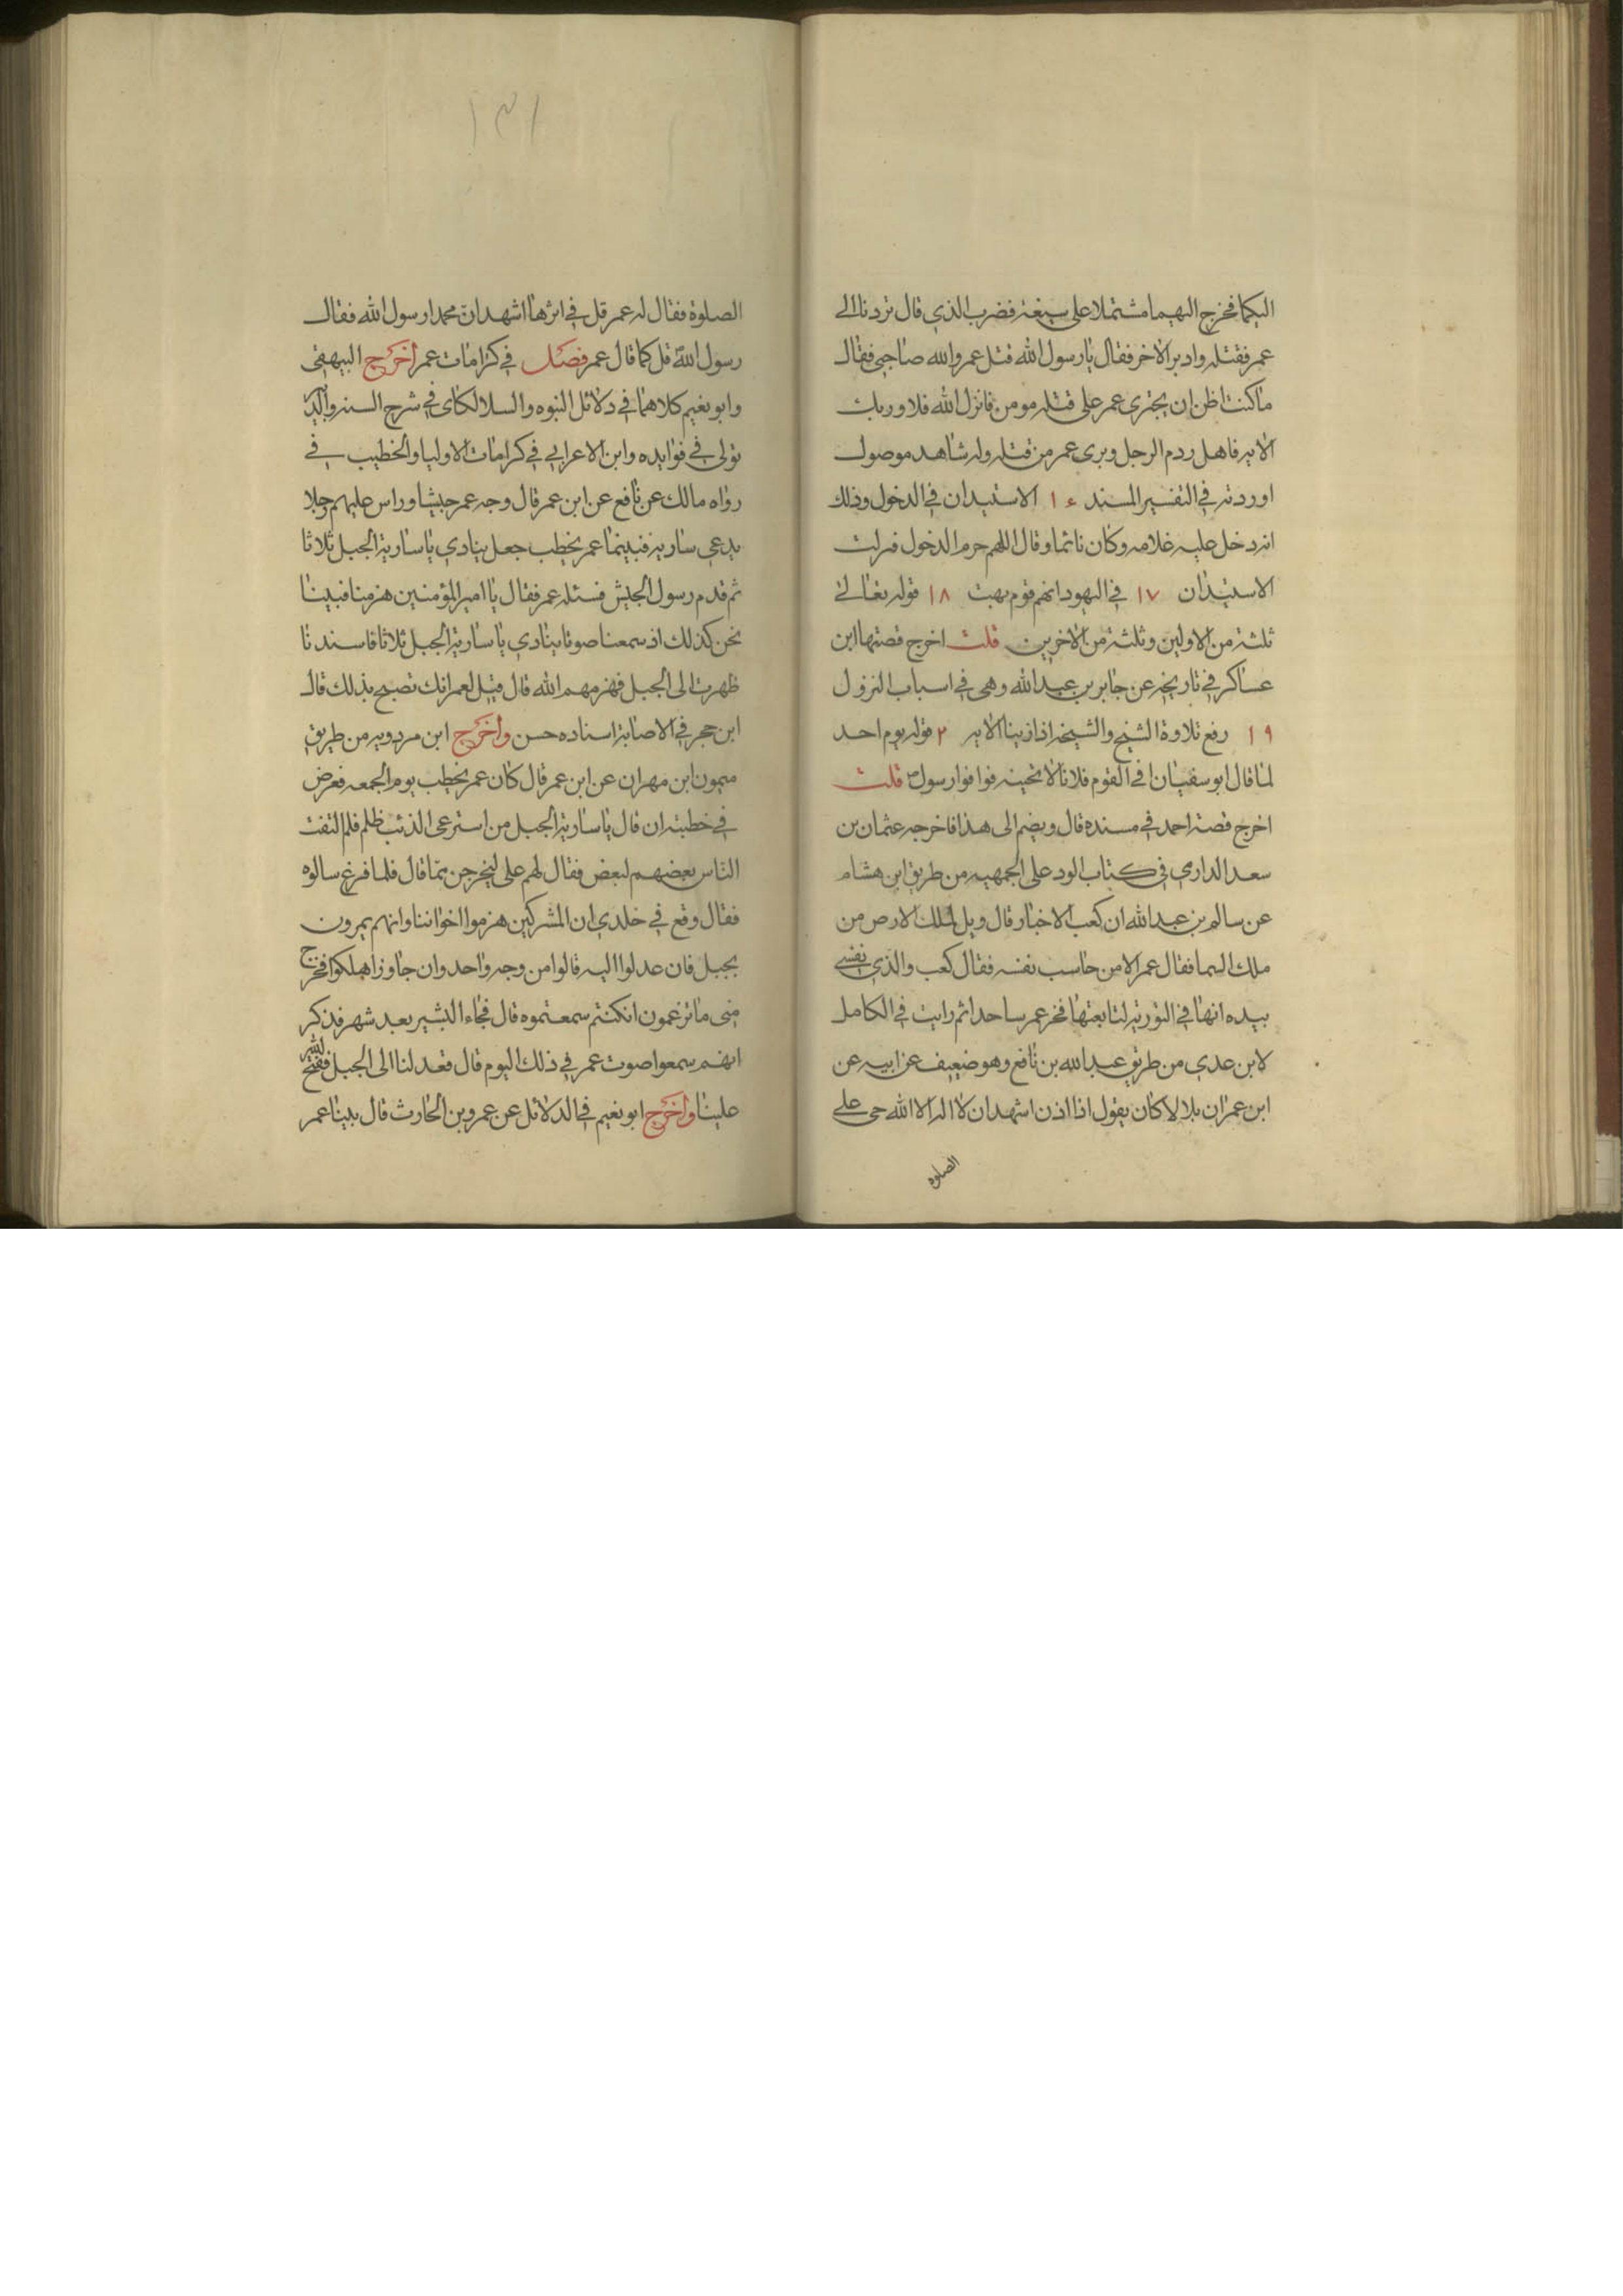 اليكما فخرج اليهما مشتملا على سيفه فضرب الذي قال تردنا الى
عمر فقتله وادبر الاخر فقال يا رسول الله قتل عمر والله صاحبي فقال
ما كنت اظن ان يجترى عمر على قتله مومن فانزل الله فلا وربك
الايه فاهل ردم الرجل وبرى عمر من قتله وله شاهد موصول
اوردته في التفسير المسند ١ء الاستيدان في الدخول وذلك
انه دخل عليه غلامه وكان نائما وقال اللهم حرم الدخول فنزلت
الاستيذان ١٧ في اليهود انهم قوم بهت ١٨ قوله تعالى
ثلثة من الاولين وثلثة من الاخرين قلت اخرج قصتها ابن
عساكر في تاريخه عن جابر بن عبد الله وهي في اسباب النزول
١٩ رفع تلاوة الشيخ والشيخة اذا زنينا الايه ٢ قوله يوم احد
لما قال ابو سفيان افي القوم فلانا لا تحينه فوافوا رسول ص قلت
اخرج قصته احمد في مسنده قال ويضم الى هذا فاخرجه عثمان بن
سعد الداري في كتاب الود على الجمهيه من طريق ابن هشام
عن سالم بن عبد الله ان كعب الاخبار قال ويل لملك الارض من
ملك السما فقال عمر الا من حاسب نفسه فقال كعب والذي نفسي
بيده انها في التورية لتابعتها فخر عمر ساحدا ثم رايت في الكامل
لابن عدي من طريق عبد الله بن نافع وهو ضعيف عن ابيه عن
ابن عمر ان بلالا كان يقول اذا اذن اشهد ان لا اله الا الله حى على
الصلوه
١٣١
الصلوة فقال له عمر قل في اثرها اشهد ان محمدا رسول الله فقال
رسول الله قل كما قال عمر فصل في كرامات عمر أخرج البيهقى
وابو نعيم كلاهما في دلائل النبوه والسلالكاى في شرح السنه والدير
عولى في فوايده وابن الاعرابي في كرامات الاوليا والخطيب في
رواه مالك عن نافع عن ابن عمر قال وجه عمر جيشا وراس عليهم رجلا
يدعى ساريه فبينما عمر يخطب جعل ينادي يا سارية الجبل ثلاثا
ثم قدم رسول الجيش فسئله عمر فقال يا امير المؤمنين هزمنا فبينا
نحن كذلك اذ سمعنا صوتا ينادي يا سارية الجبل ثلاثا فاسندنا
ظهرت الى الجبل فهزمهم الله قال قيل لعمر انك تصيح بذلك قال
ابن حجر في الاصابة اسناده حسن وأخرج ابن مردويه من طريق
ميمون ابن مهران عن ابن عمر قال كان عمر يخطب يوم الجمعه فعرض
في خطبته ان قال يا سارية الجبل من استرعى الذئب ظلم فلم التفت
الناس بعضهم لبعض فقال لهم على ليخرجن بما قال فلما فرغ سالوه
فقال وقع في خلدي ان المشركين هزموا اخواننا وانهم يمرون
بجبل فان عدلوا اليه قالوا من وجه واحد وان جاوزا هلكوا فخرج
منى ما تزعمون انكنتم سمعتموه قال فجاء البشير بعد شهر فذكر
انهم سمعوا صوت عمر في ذلك اليوم قال فعدلنا الى الجبل ففتح الله
علينا وأخرج ابو نعيم في الدلائل عن عمرو بن الحارث قال بينا عمر